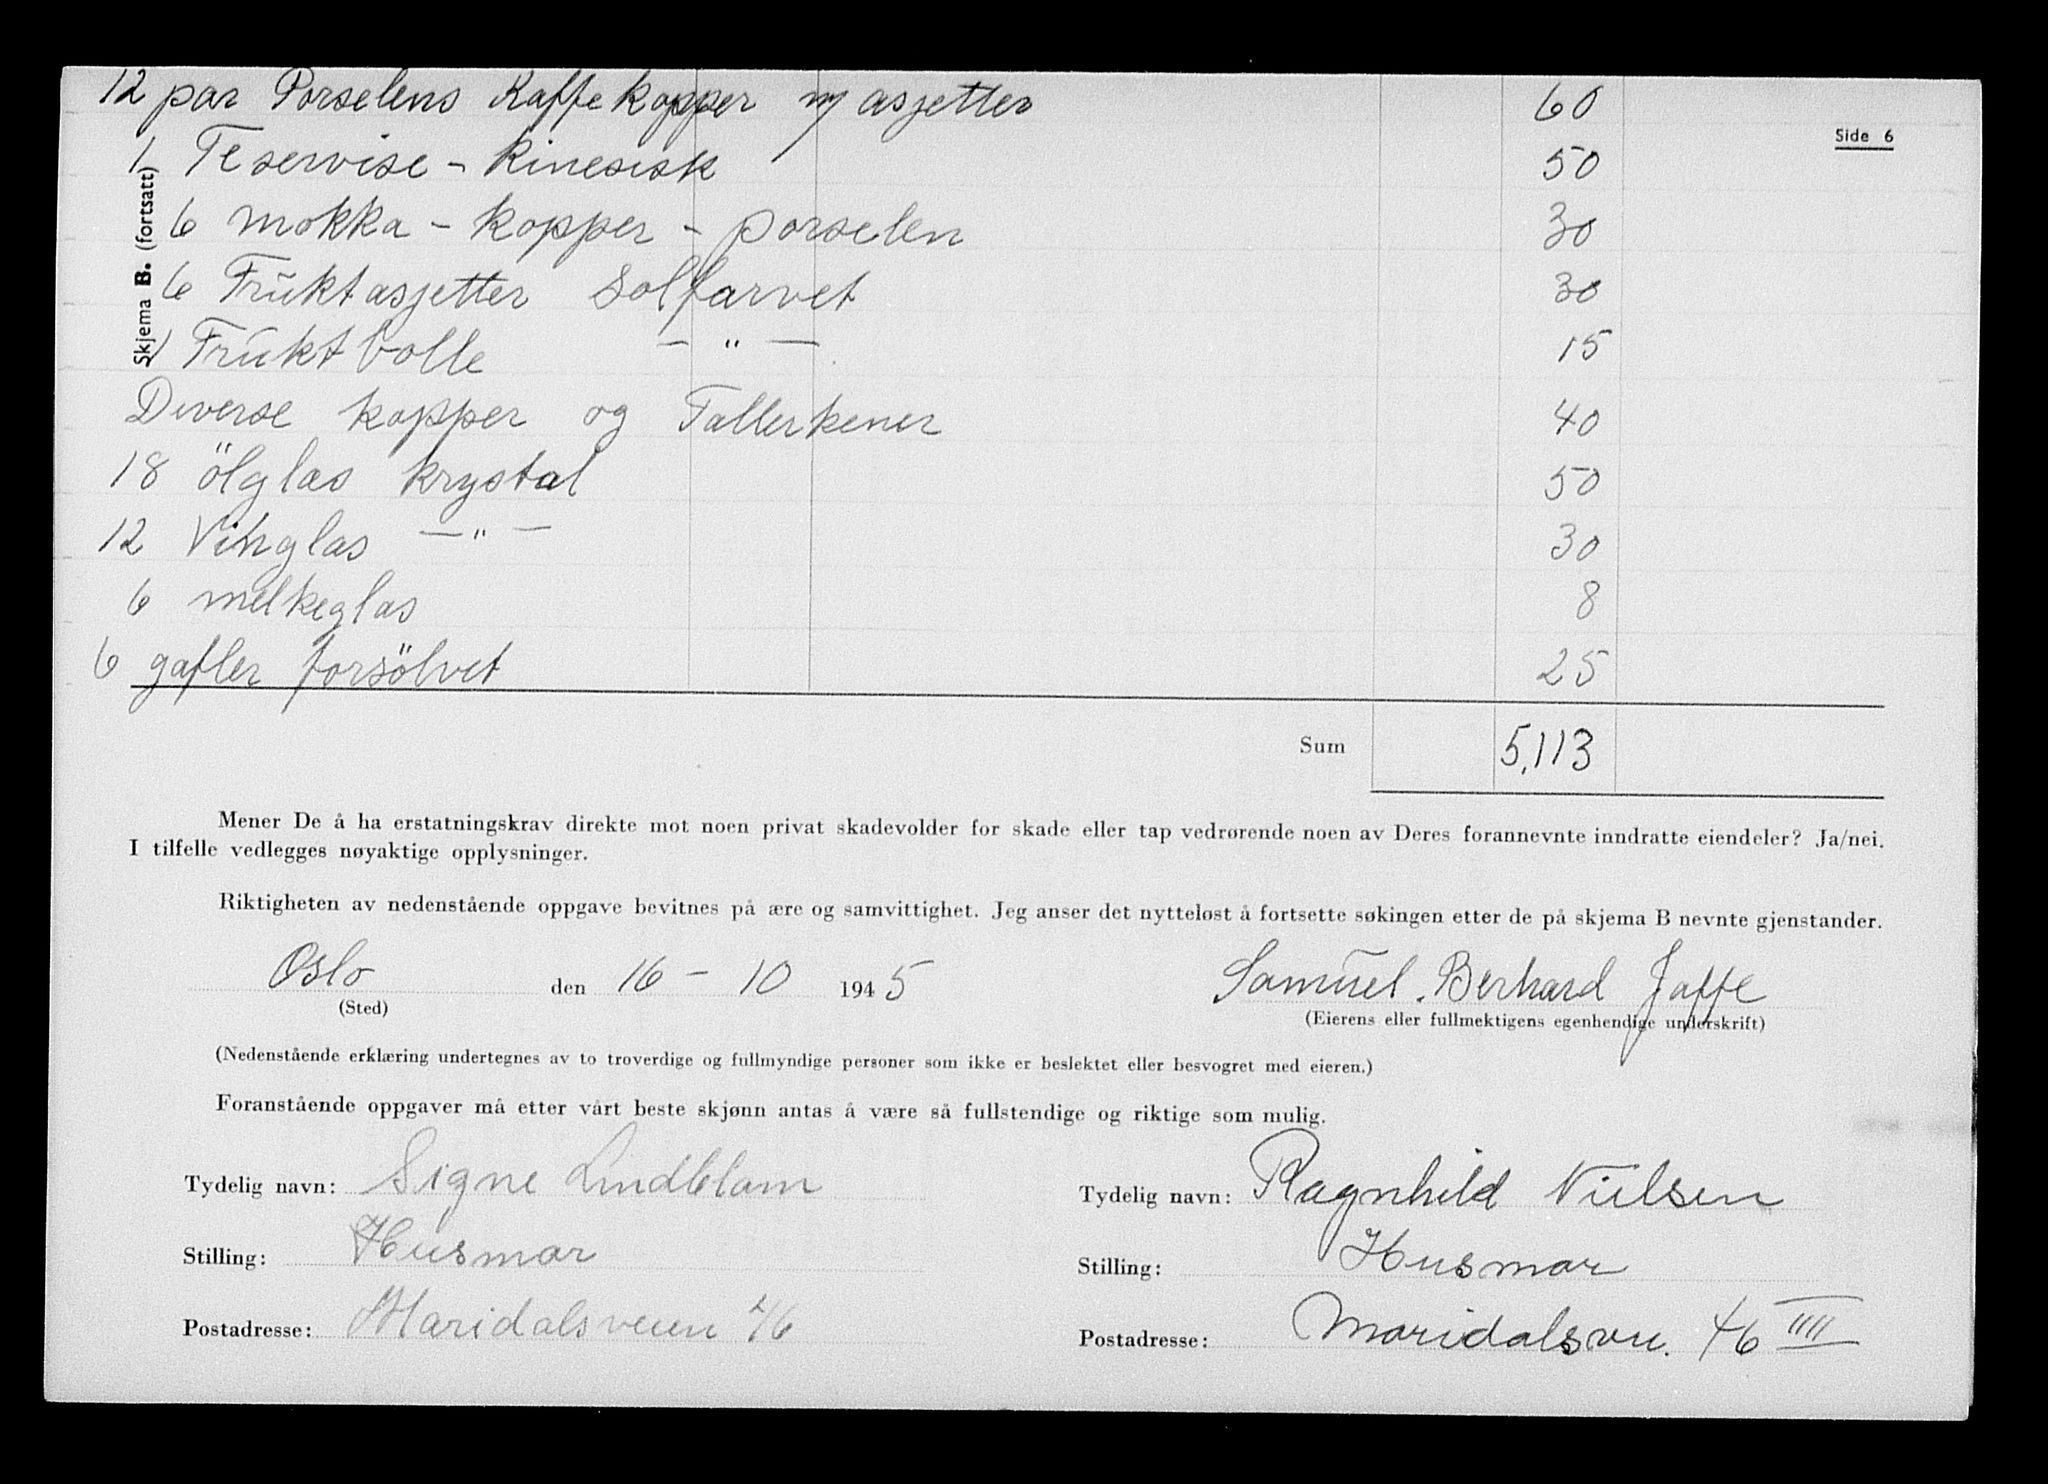 12 par Porselens Kaffekopper m/ asjetter 60
Side 6
1 Teservise - Kinesisk 50
6 mokka - kopper - porselen 30
6 Fruktasjetter Solfarvet 30
1 Fruktbolle — " — 15
Skjema B. (fortsatt)
Diverse kopper og Tallerkener 40
18 ölglas krystal 50
12 Vinglas — " — 30
6 melkeglas 8
6 gafler forsölvet 25
Sum 5,113
Mener De å ha erstatningskrav direkte mot noen privat skadevolder for skade eller tap vedrørende noen av Deres forannevnte inndratte eiendeler? Ja/nei.
I tilfelle vedlegges nøyaktige opplysninger.
Riktigheten av nedenstående oppgave bevitnes på ære og samvittighet. Jeg anser det nytteløst å fortsette søkingen etter de på skjema B nevnte gjenstander.
Oslo den 16 - 10 1945 Samuel. Berhard Jaffe
(Sted) (Eierens eller fullmektigens egenhendige underskrift)
(Nedenstående erklæring undertegnes av to troverdige og fullmyndige personer som ikke er beslektet eller besvogret med eieren.)
Foranstående oppgaver må etter vårt beste skjønn antas å være så fullstendige og riktige som mulig.
Tydelig navn: Signe Lindblom Tydelig navn: Ragnhild Nielsen
Stilling: Husmor Stilling: Husmor
Postadresse: Maridalsveien 46 Postadresse: Maridalsvei. 46 IIII